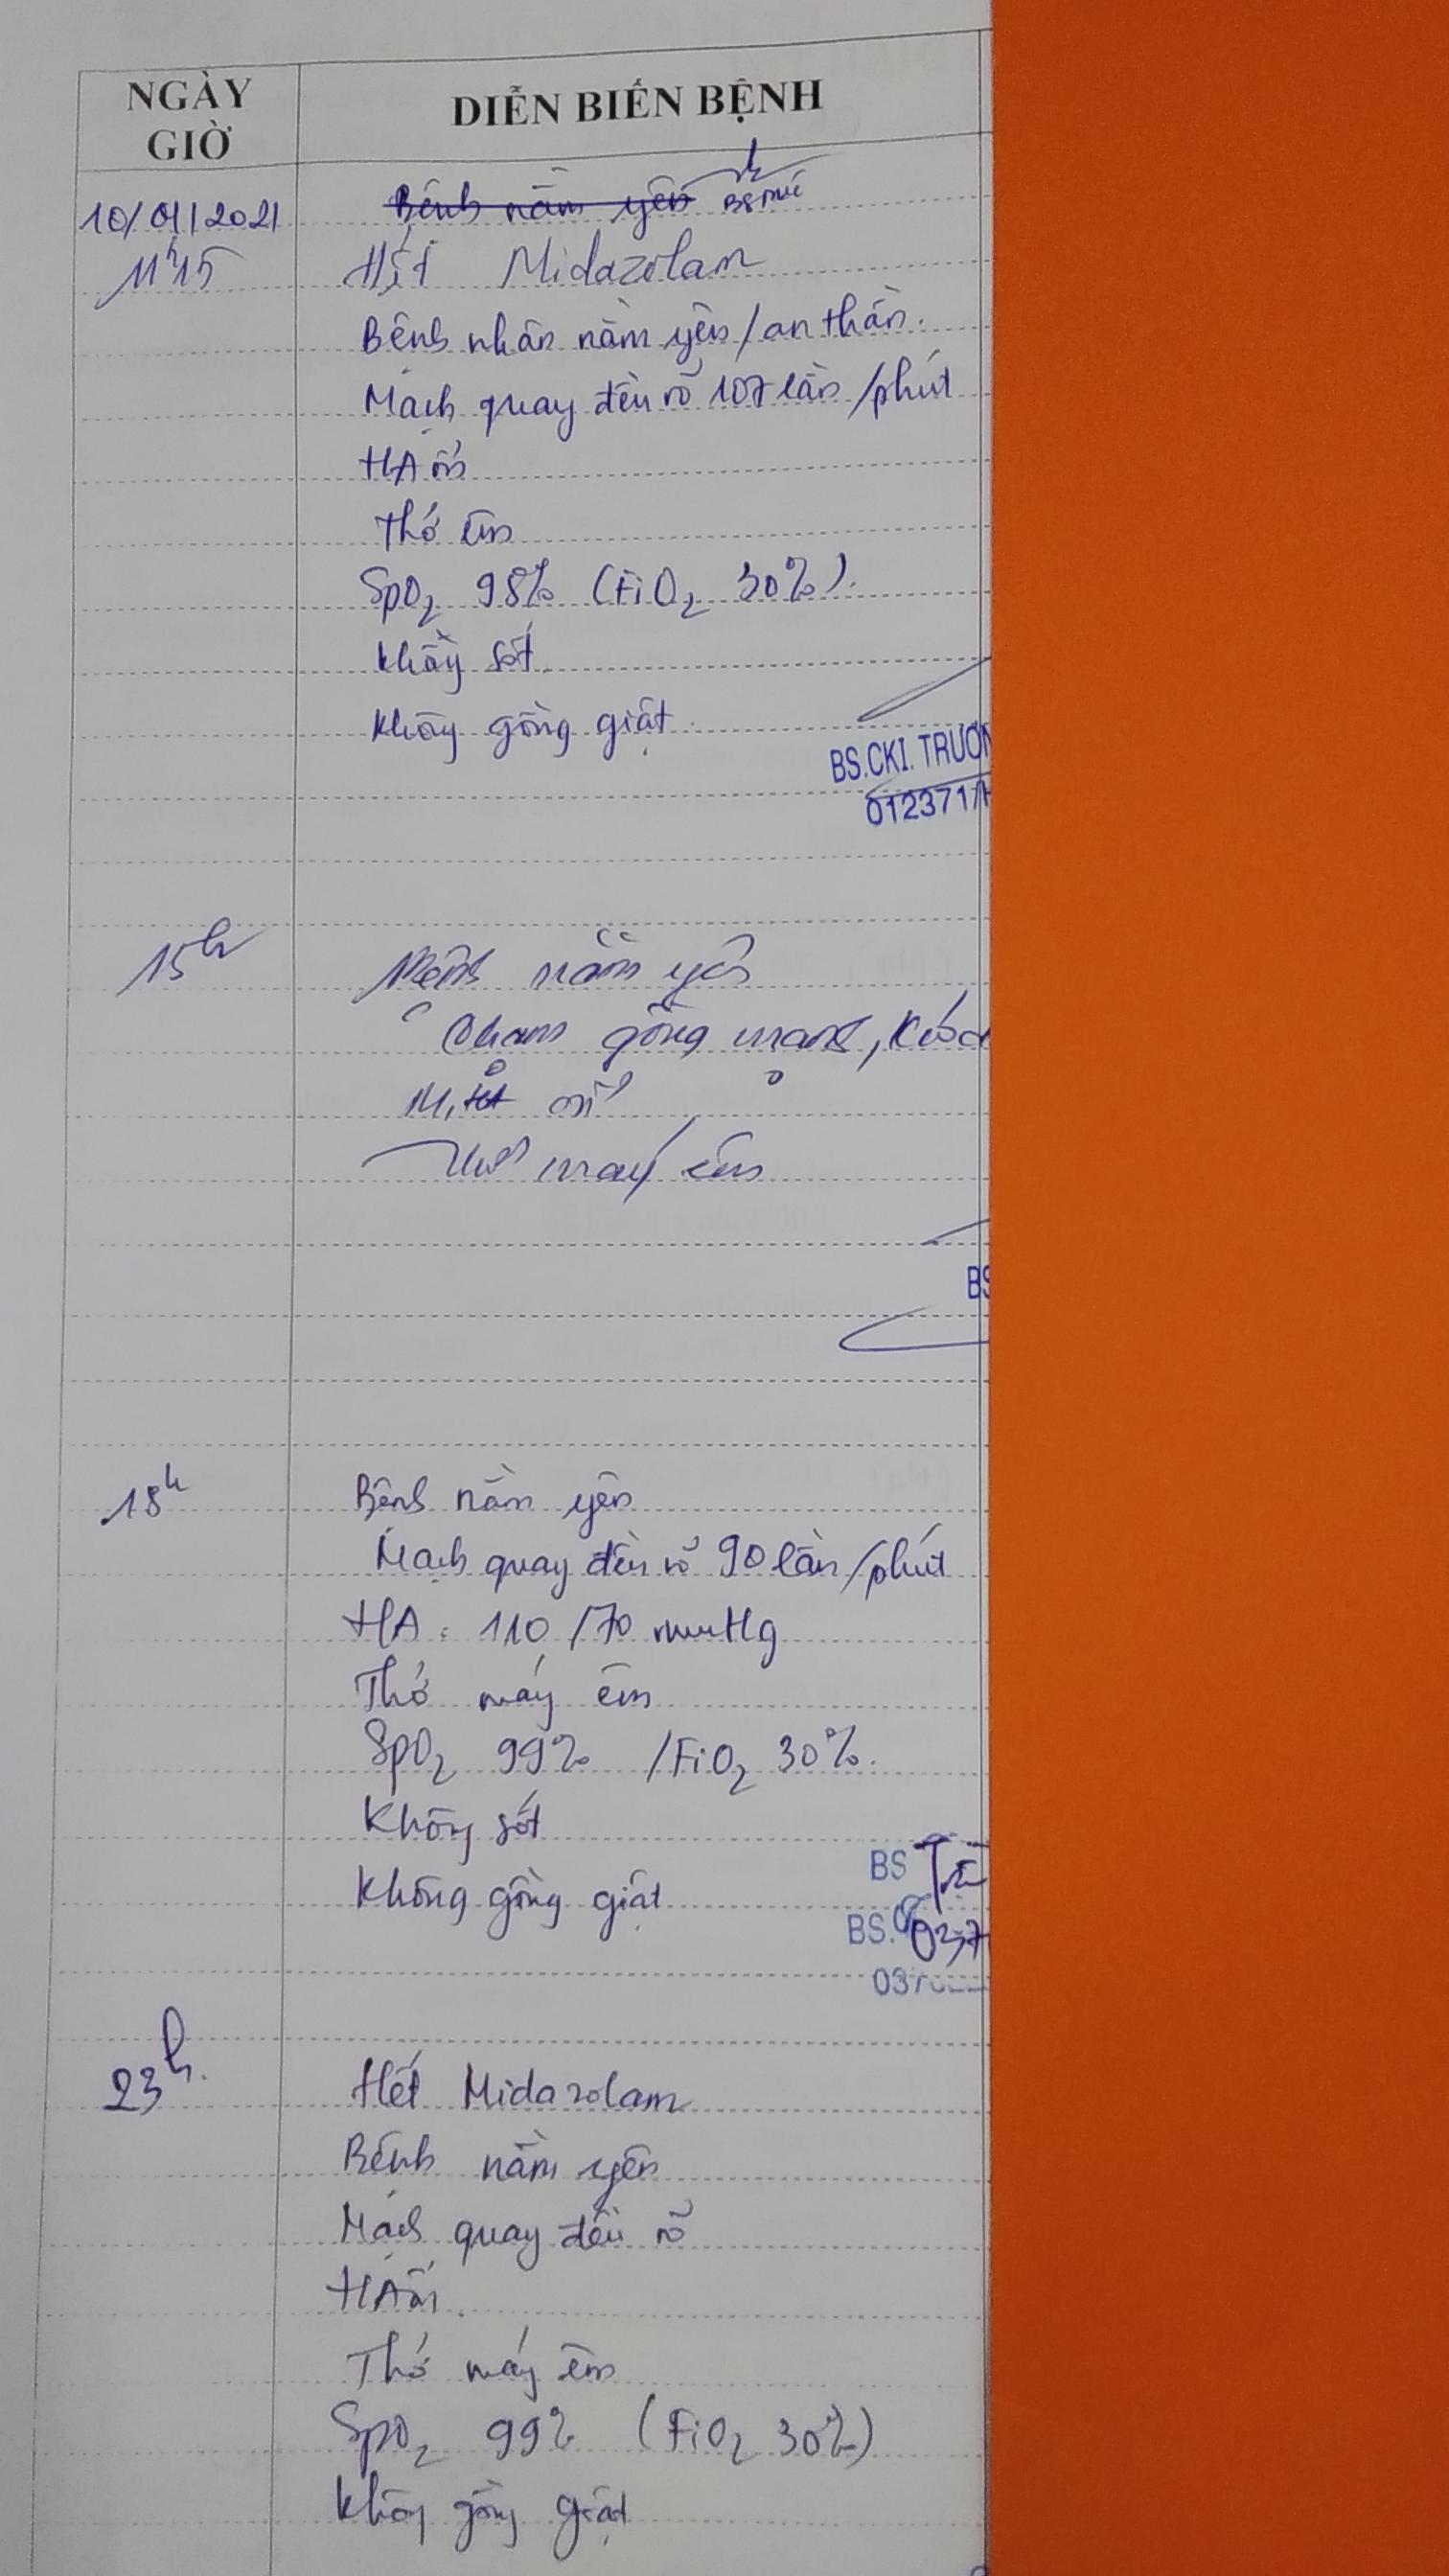 NGÀY
GIỜ
DIỄN BIẾN BỆNH
Bệnh nằm yên
10/01/2021
11h15
Hết Midazolam
Bệnh nhân nằm yên/an thần.
Mạch quay đều rõ 107 lần/phút
HA ổn
Thở êm
SpO2 98% (FiO2 30%).
Không sốt
Không gồng giật
BS.CKI. TRƯƠN
012371/H
15h
Bệnh nằm yên
gồng
M, HA ổn
Thở máy êm
BS
18h
Bệnh nằm yên
Mạch quay đều rõ 90 lần/phút
HA: 110/70 mmHg
Thở máy êm
SpO2 99% /FiO2 30%.
Không sốt
Không gồng giật
BS
BS.
037
23h.
Hết Midazolam
Bệnh nằm yên
Mạch quay đều rõ
HA ổn
Thở máy êm
SpO2 99% (FiO2 30%)
Không gồng giật